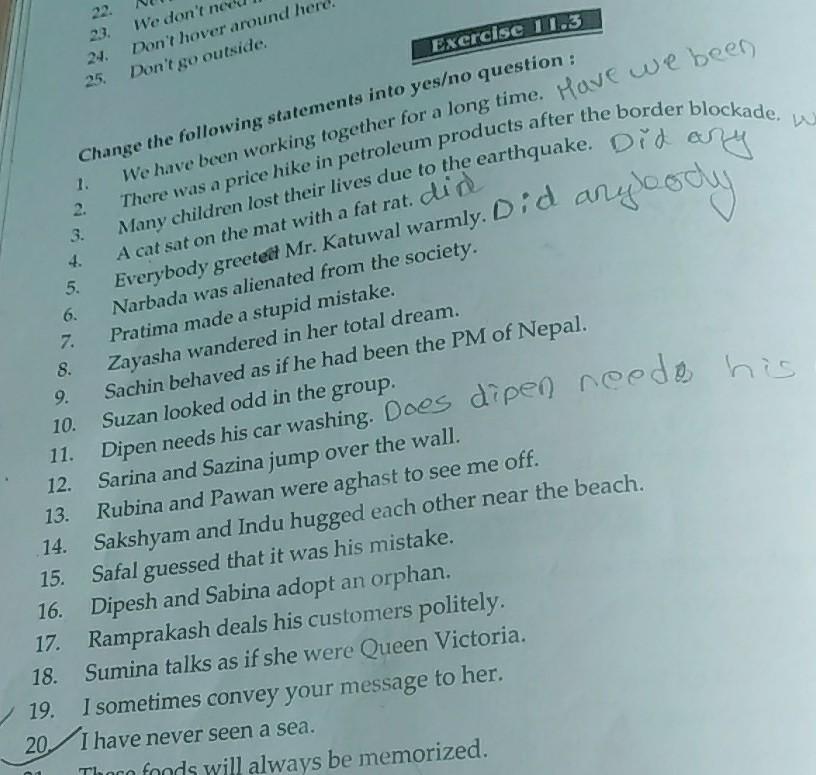 22.
23. We don't need
24. Don't hover around here.
25. Don't go outside.
Exercise 11.3
Change the following statements into yes/no question :
1. We have been working together for a long time. Have we been
2. There was a price hike in petroleum products after the border blockade. w
3. Many children lost their lives due to the earthquake. Did any
4. A cat sat on the mat with a fat rat. did
5. Everybody greeted Mr. Katuwal warmly. Did anybody
6. Narbada was alienated from the society.
7. Pratima made a stupid mistake.
8. Zayasha wandered in her total dream.
9. Sachin behaved as if he had been the PM of Nepal.
10. Suzan looked odd in the group.
11. Dipen needs his car washing. Does dipen need his
12. Sarina and Sazina jump over the wall.
13. Rubina and Pawan were aghast to see me off.
14. Sakshyam and Indu hugged each other near the beach.
15. Safal guessed that it was his mistake.
16. Dipesh and Sabina adopt an orphan.
17. Ramprakash deals his customers politely.
18. Sumina talks as if she were Queen Victoria.
19. I sometimes convey your message to her.
20. I have never seen a sea.
These foods will always be memorized.